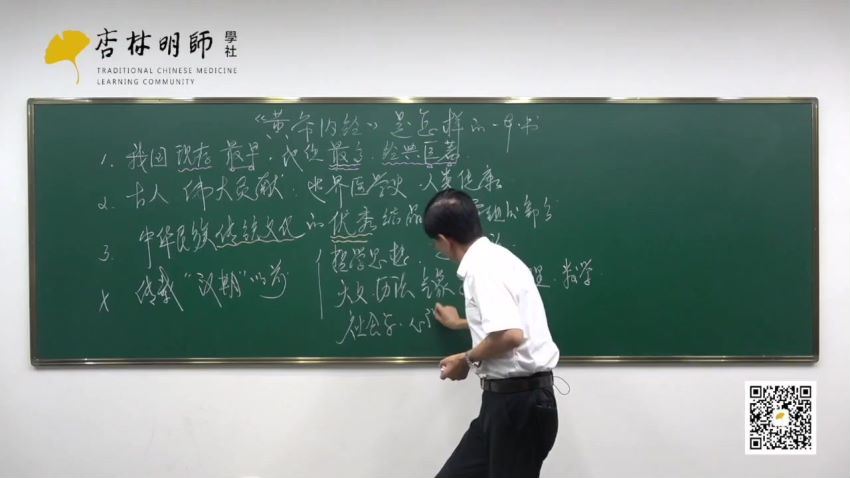 杏林明師
學社
TRADITIONAL CHINESE MEDICINE
LEARNING COMMUNITY
《黄帝内经》是怎样的一部书
1. 我国现存最早,地位最高,经典巨著
2. 古人伟大贡献:世界医学史,人类健康
3. 中华民族传统文化的优秀结晶 组成部分
传载“汉朝”以前
哲学思想
天文.历法.气象 数学
社会学.心